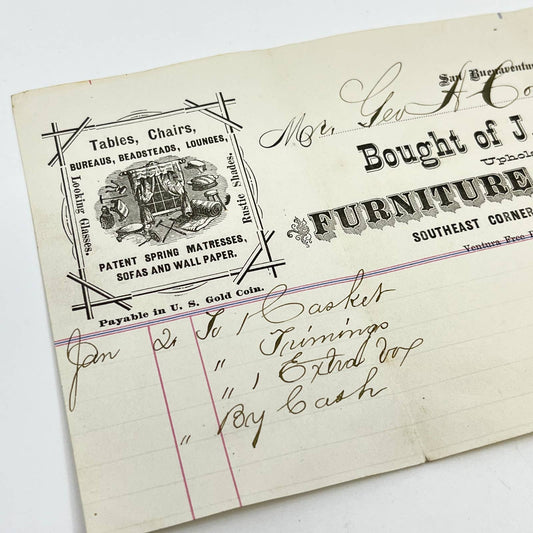 San Buenaventur
Mr. Geo A Co
Bought of J.
Uphol
FURNITURE
SOUTHEAST CORNER
Ventura Free
Tables, Chairs,
BUREAUS, BEADSTEADS, LOUNGES,
Looking Glasses.
Rustic Shades.
PATENT SPRING MATRESSES,
SOFAS AND WALL PAPER.
Payable in U. S. Gold Coin.
Jan 2 To 1 Casket
" Trimings
" 1 Extra box
" By Cash